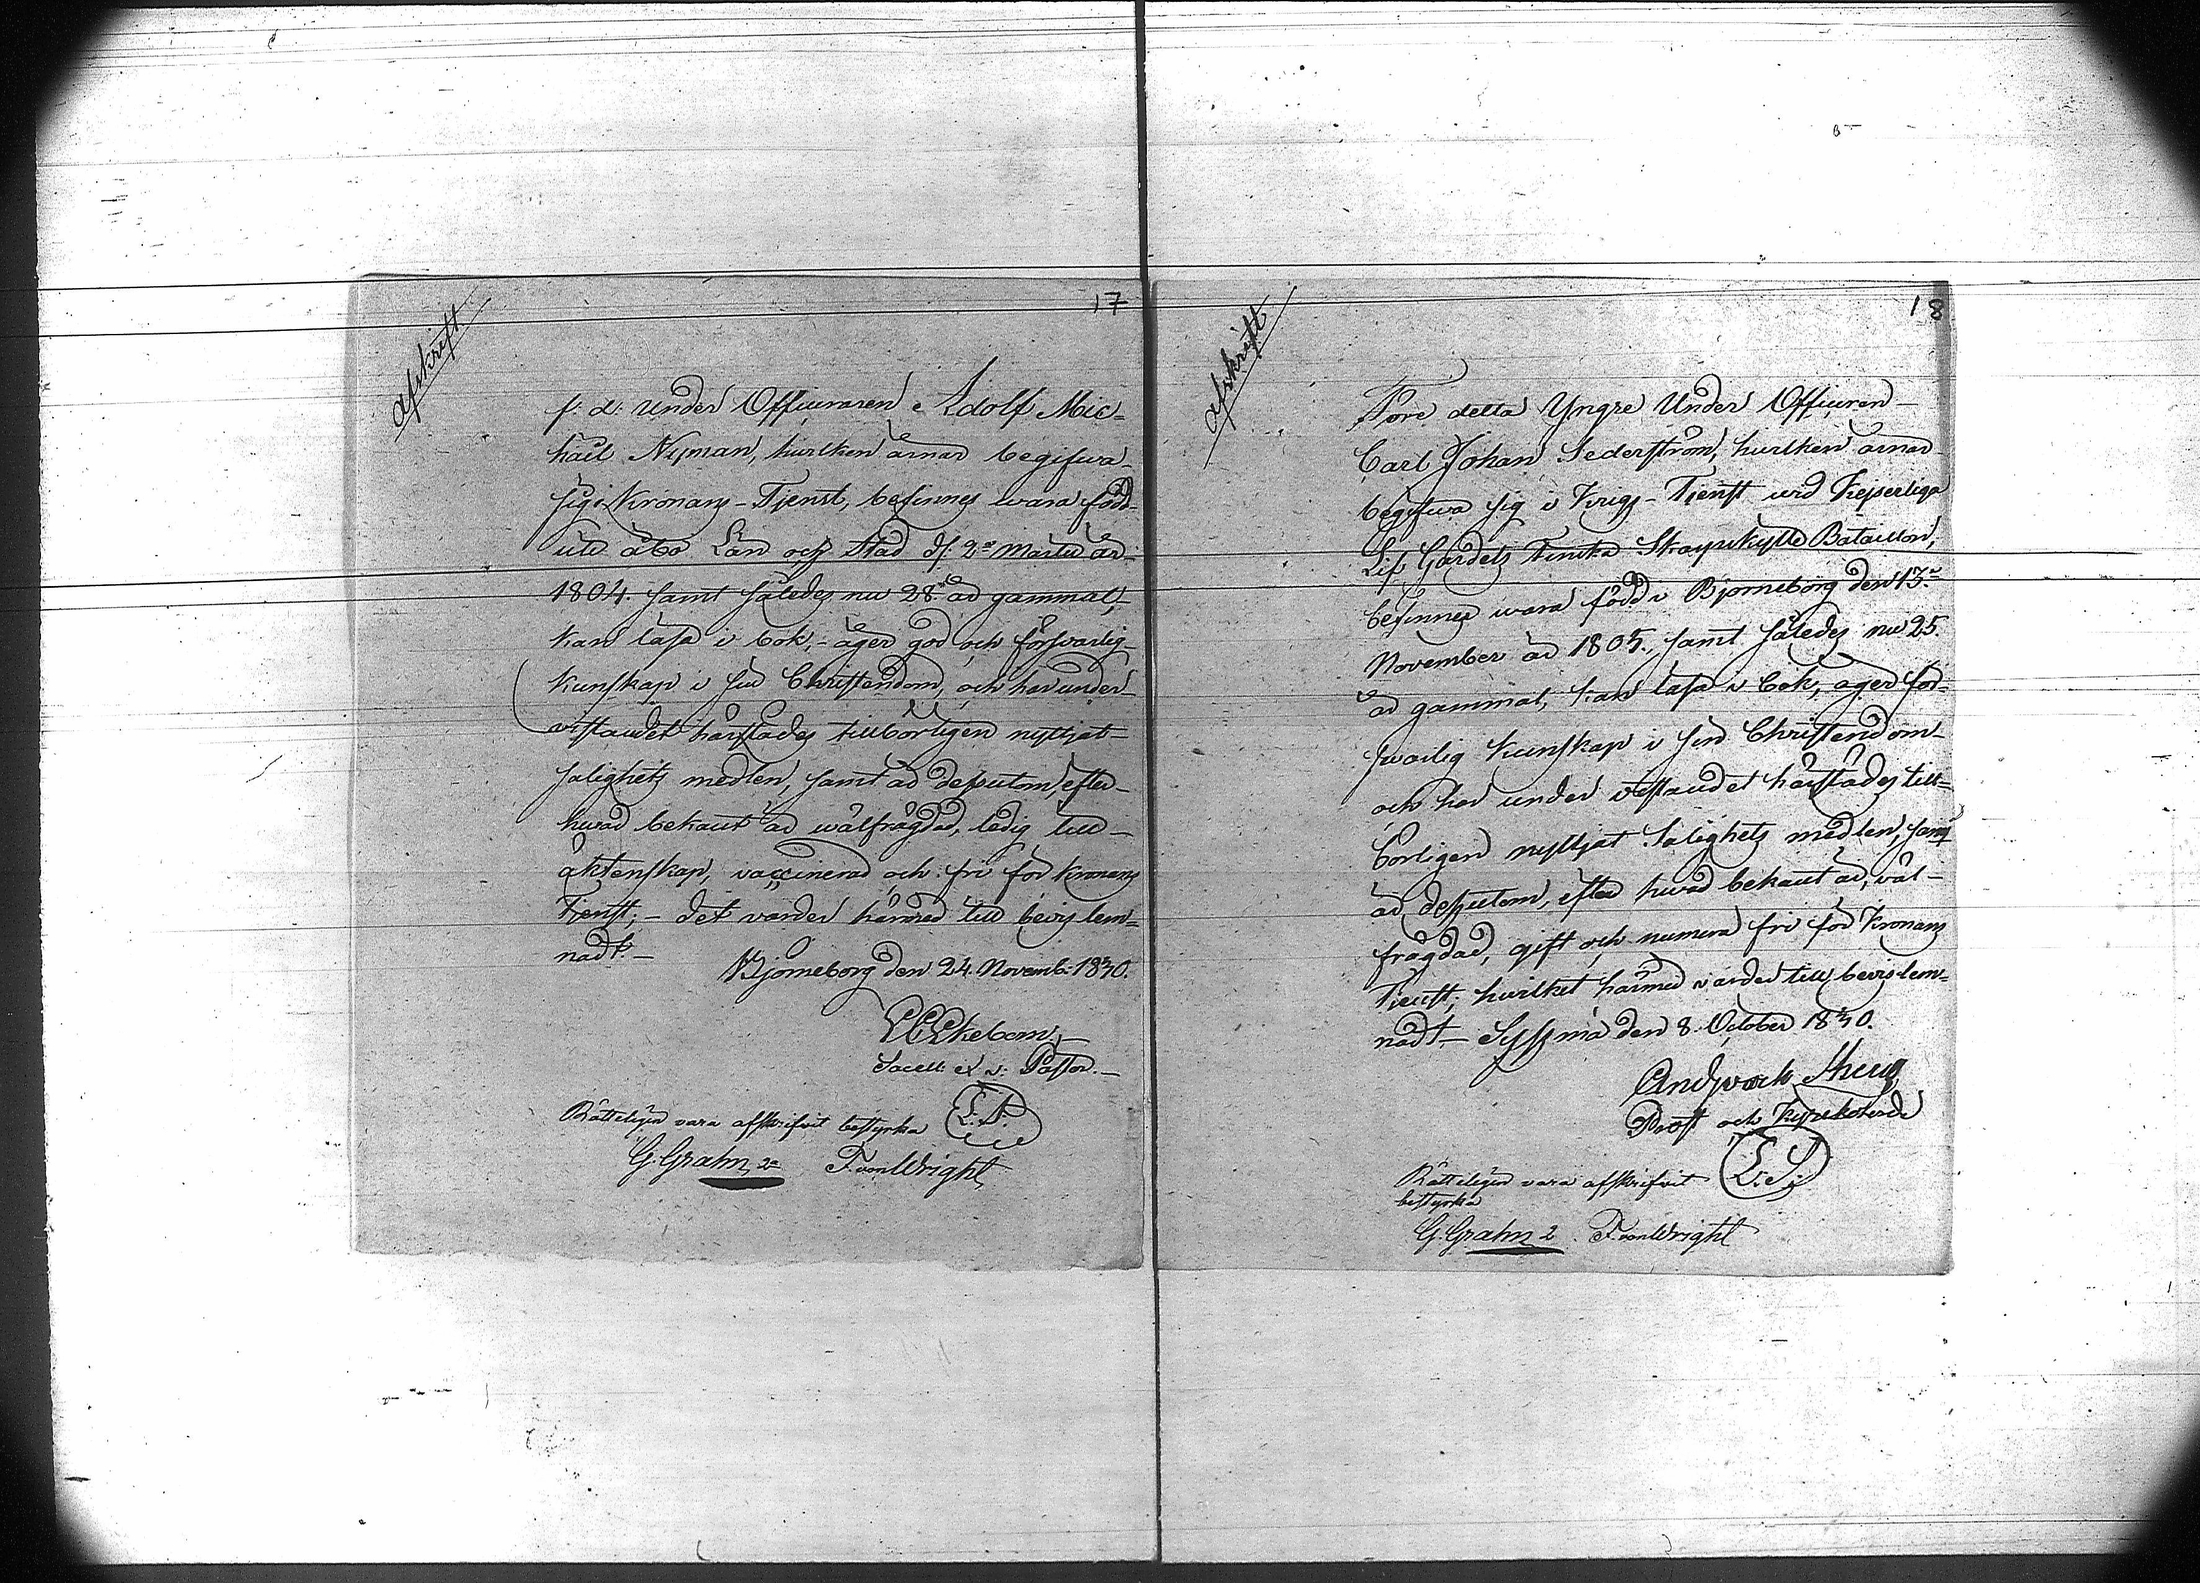 17
afskrift
f: d: Under Officeraren Adolf Mic-
hail Nyman, hvilken ärnar begifva
sig i Kronans-Tjenst, befinnes vara född
uti Åbo Län och Stad d: 2e Martii år
1804. samt således nu 28 år gammal,
kan läsa i bok, - äger god och försvarlig
kunskap i sin Christendom, och har under
vistandet härstädes tillbörligen nyttjat
salighets medlen, samt är dessutom efter
hvad bekant är välfrägdad, ledig till
äktenskap, vaccinerad och fri för Kronans
Tjenst; - det varder härmed till bevis lem-
nadt. -
Björneborg den 24. Novemb: 1830.
Ekebom
Sacell: et v: Pastor. -
L. S.
Rätteligen vara afskrifvit bestyrka
G. Grahn 2e F. von Wright
18
afskrift
Före detta Yngre Under Officeren
Carl Johan Sederström, hvilken ärnar
begifva sig i Krigs-Tjenst vid Kejserliga
Lif Gardets Finska Skarpskytte Bataillon,
befinnes vara född i Björneborg den 13e
November år 1805., samt således nu 25.
år gammal, kan läsa i bok, äger för-
svarlig kunskap i sin Christendom
och har under vistandet härstädes till-
börligen nyttjat Salighets medlen, samt
är dessutom, efter hvad bekant är, väl-
frägdad, gift och numera fri för Kronans
Tienst; hvilket härmed varder till bevis lem-
nadt - Syssmä den 8. October 1830.
Prost och Kyrkoherde
L. S.
Rätteligen vara afskrifvit
bestyrka
G. Grahn 2. F. von Wright